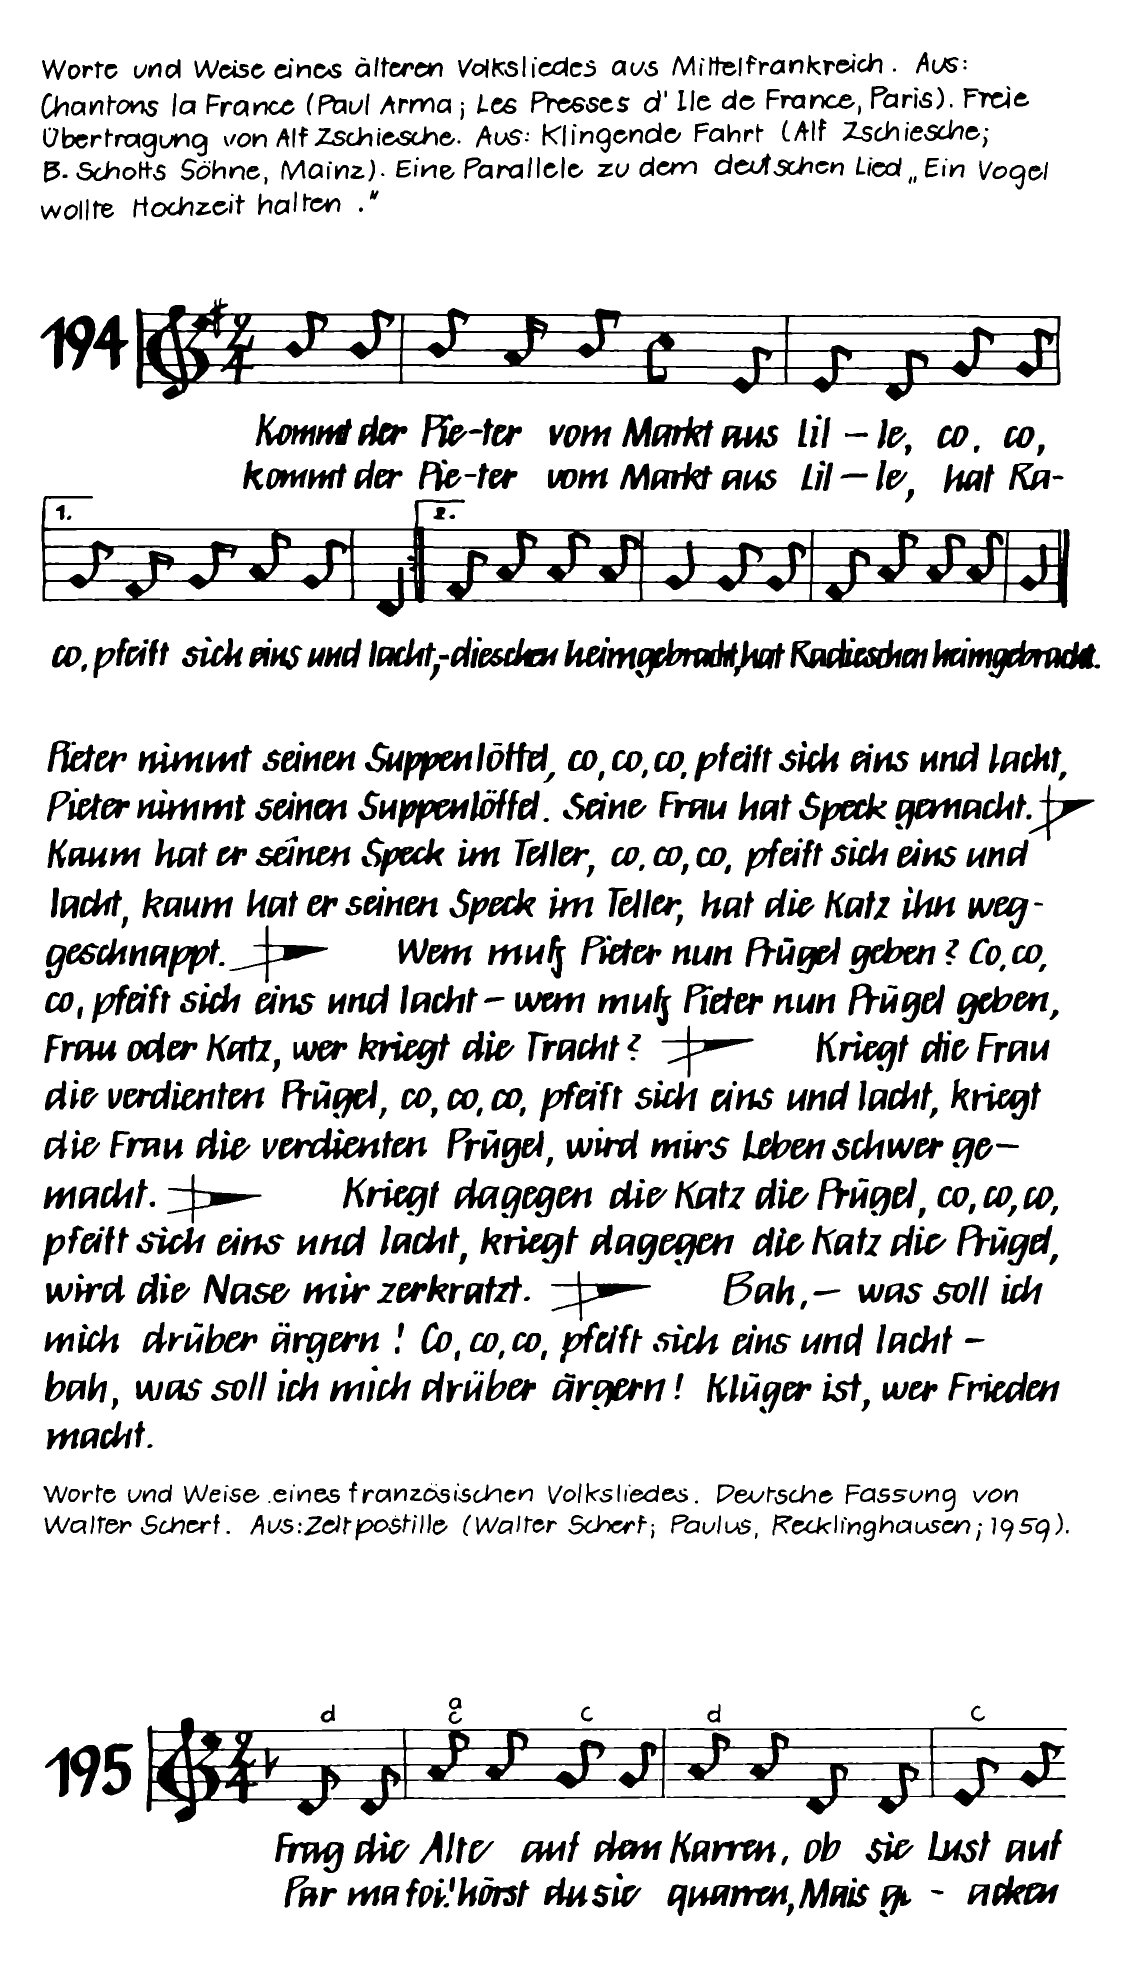 Worte und Weise eines älteren Volksliedes aus Mittelfrankreich. Aus:
Chantons la France (Paul Arma; Les Presses d'Ile de France, Paris). Freie
Übertragung von Alf Zschiesche. Aus: Klingende Fahrt (Alf Zschiesche;
B. Schotts Söhne, Mainz). Eine Parallele zu dem deutschen Lied „Ein Vogel
wollte Hochzeit halten."
194
2/4
Kommt der Pie-ter vom Markt aus Lil – le, co, co,
kommt der Pie-ter vom Markt aus Lil – le, hat Ra-
1. 2.
co, pfeift sich eins und lacht,-dieschen heimgebracht, hat Radieschen heimgebracht.
Pieter nimmt seinen Suppenlöffel, co, co, co, pfeift sich eins und lacht,
Pieter nimmt seinen Suppenlöffel. Seine Frau hat Speck gemacht.
Kaum hat er seinen Speck im Teller, co, co, co, pfeift sich eins und
lacht, kaum hat er seinen Speck im Teller, hat die Katz ihn weg-
geschnappt. Wem muß Pieter nun Prügel geben? Co, co,
co, pfeift sich eins und lacht – wem muß Pieter nun Prügel geben,
Frau oder Katz, wer kriegt die Tracht? Kriegt die Frau
die verdienten Prügel, co, co, co, pfeift sich eins und lacht, kriegt
die Frau die verdienten Prügel, wird mirs Leben schwer ge–
macht. Kriegt dagegen die Katz die Prügel, co, co, co,
pfeift sich eins und lacht, kriegt dagegen die Katz die Prügel,
wird die Nase mir zerkratzt. Bah, – was soll ich
mich drüber ärgern! Co, co, co, pfeift sich eins und lacht –
bah, was soll ich mich drüber ärgern! Klüger ist, wer Frieden
macht.
Worte und Weise eines französischen Volksliedes. Deutsche Fassung von
Walter Scherf. Aus: Zeltpostille (Walter Scherf; Paulus, Recklinghausen; 1959).
d a c c d c
195
2/4
Frag die Alte auf dem Karren, ob sie Lust auf
Par ma foi! hörst du sie quarren, Mais ga - acken